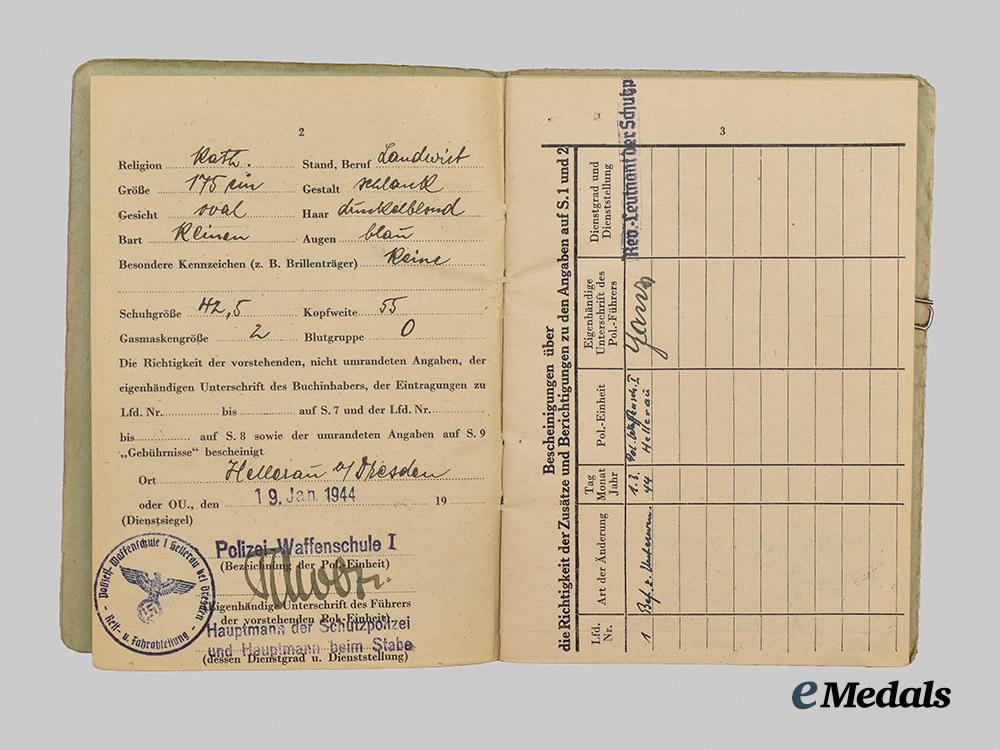 2
Religion Kath. Stand, Beruf Landwirt
Größe 175 cm Gestalt schlank
Gesicht oval Haar dunkelblond
Bart keinen Augen blau
Besondere Kennzeichen (z. B. Brillenträger) keine
Schuhgröße 42,5 Kopfweite 55
Gasmaskengröße 2 Blutgruppe O
Die Richtigkeit der vorstehenden, nicht umrandeten Angaben, der
eigenhändigen Unterschrift des Buchinhabers, der Eintragungen zu
Lfd. Nr. bis auf S. 7 und der Lfd. Nr.
bis auf S. 8 sowie der umrandeten Angaben auf S. 9
„Gebührnisse" bescheinigt
Ort Hellerau b/Dresden
oder OU., den 19. Jan. 1944 19
(Dienstsiegel)
Polizei-Waffenschule I
(Bezeichnung der Pol.-Einheit)
(Eigenhändige Unterschrift des Führers
der vorstehenden Pol.-Einheit)
Hauptmann der Schutzpolizei
und Hauptmann beim Stabe
(dessen Dienstgrad u. Dienststellung)
Polizei-Waffenschule I Hellerau bei Dresden
Reit- u. Fahrabteilung
3
Bescheinigungen über
die Richtigkeit der Zusätze und Berichtigungen zu den Angaben auf S. 1 und 2
Lfd. Nr.
Art der Änderung
Tag Monat Jahr
Pol.-Einheit
Eigenhändige Unterschrift des Pol.-Führers
Dienstgrad und Dienststellung
1 Bef. z. 1.3. 44 Pol. Waffensch. I Hellerau Rev.-Leutnant der Schutzp
eMedals